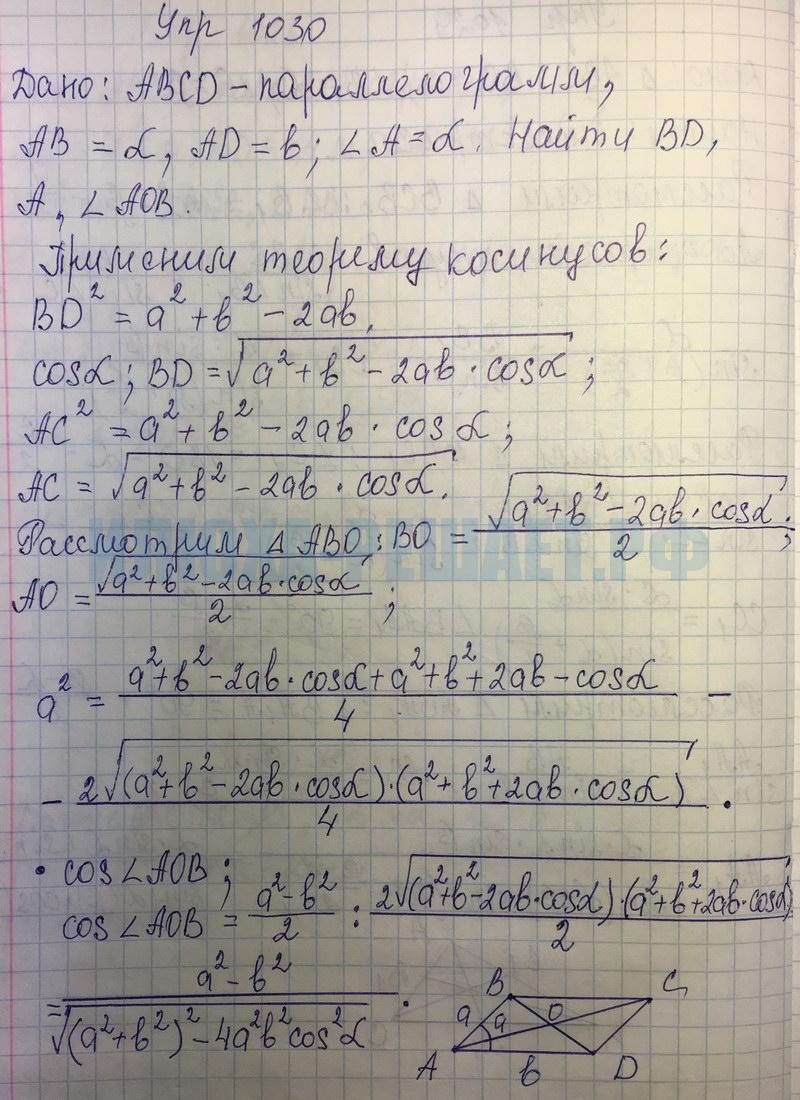 Упр 1030
Дано: ABCD – параллелограмм,
AB = α, AD = b; ∠A = α. Найти BD,
A, ∠AOB.
Применим теорему косинусов:
BD² = a² + b² - 2ab.
cosα; BD = √(a² + b² - 2ab · cosα);
AC² = a² + b² - 2ab · cosα;
AC = √(a² + b² - 2ab · cosα).
Рассмотрим Δ ABO: BO = √(a² + b² - 2ab · cosα)/2;
AO = √(a² + b² - 2ab · cosα)/2;
a² = (a² + b² - 2ab · cosα + a² + b² + 2ab - cosα)/4 -
- 2√((a² + b² - 2ab · cosα) · (a² + b² + 2ab · cosα))/4 ·
· cos∠AOB;
cos∠AOB = (a² - b²)/2 : 2√((a² + b² - 2ab · cosα) · (a² + b² + 2ab · cosα))/2
= (a² - b²)/√((a² + b²)² - 4a²b²cos²α).
B C
a a O
A b D